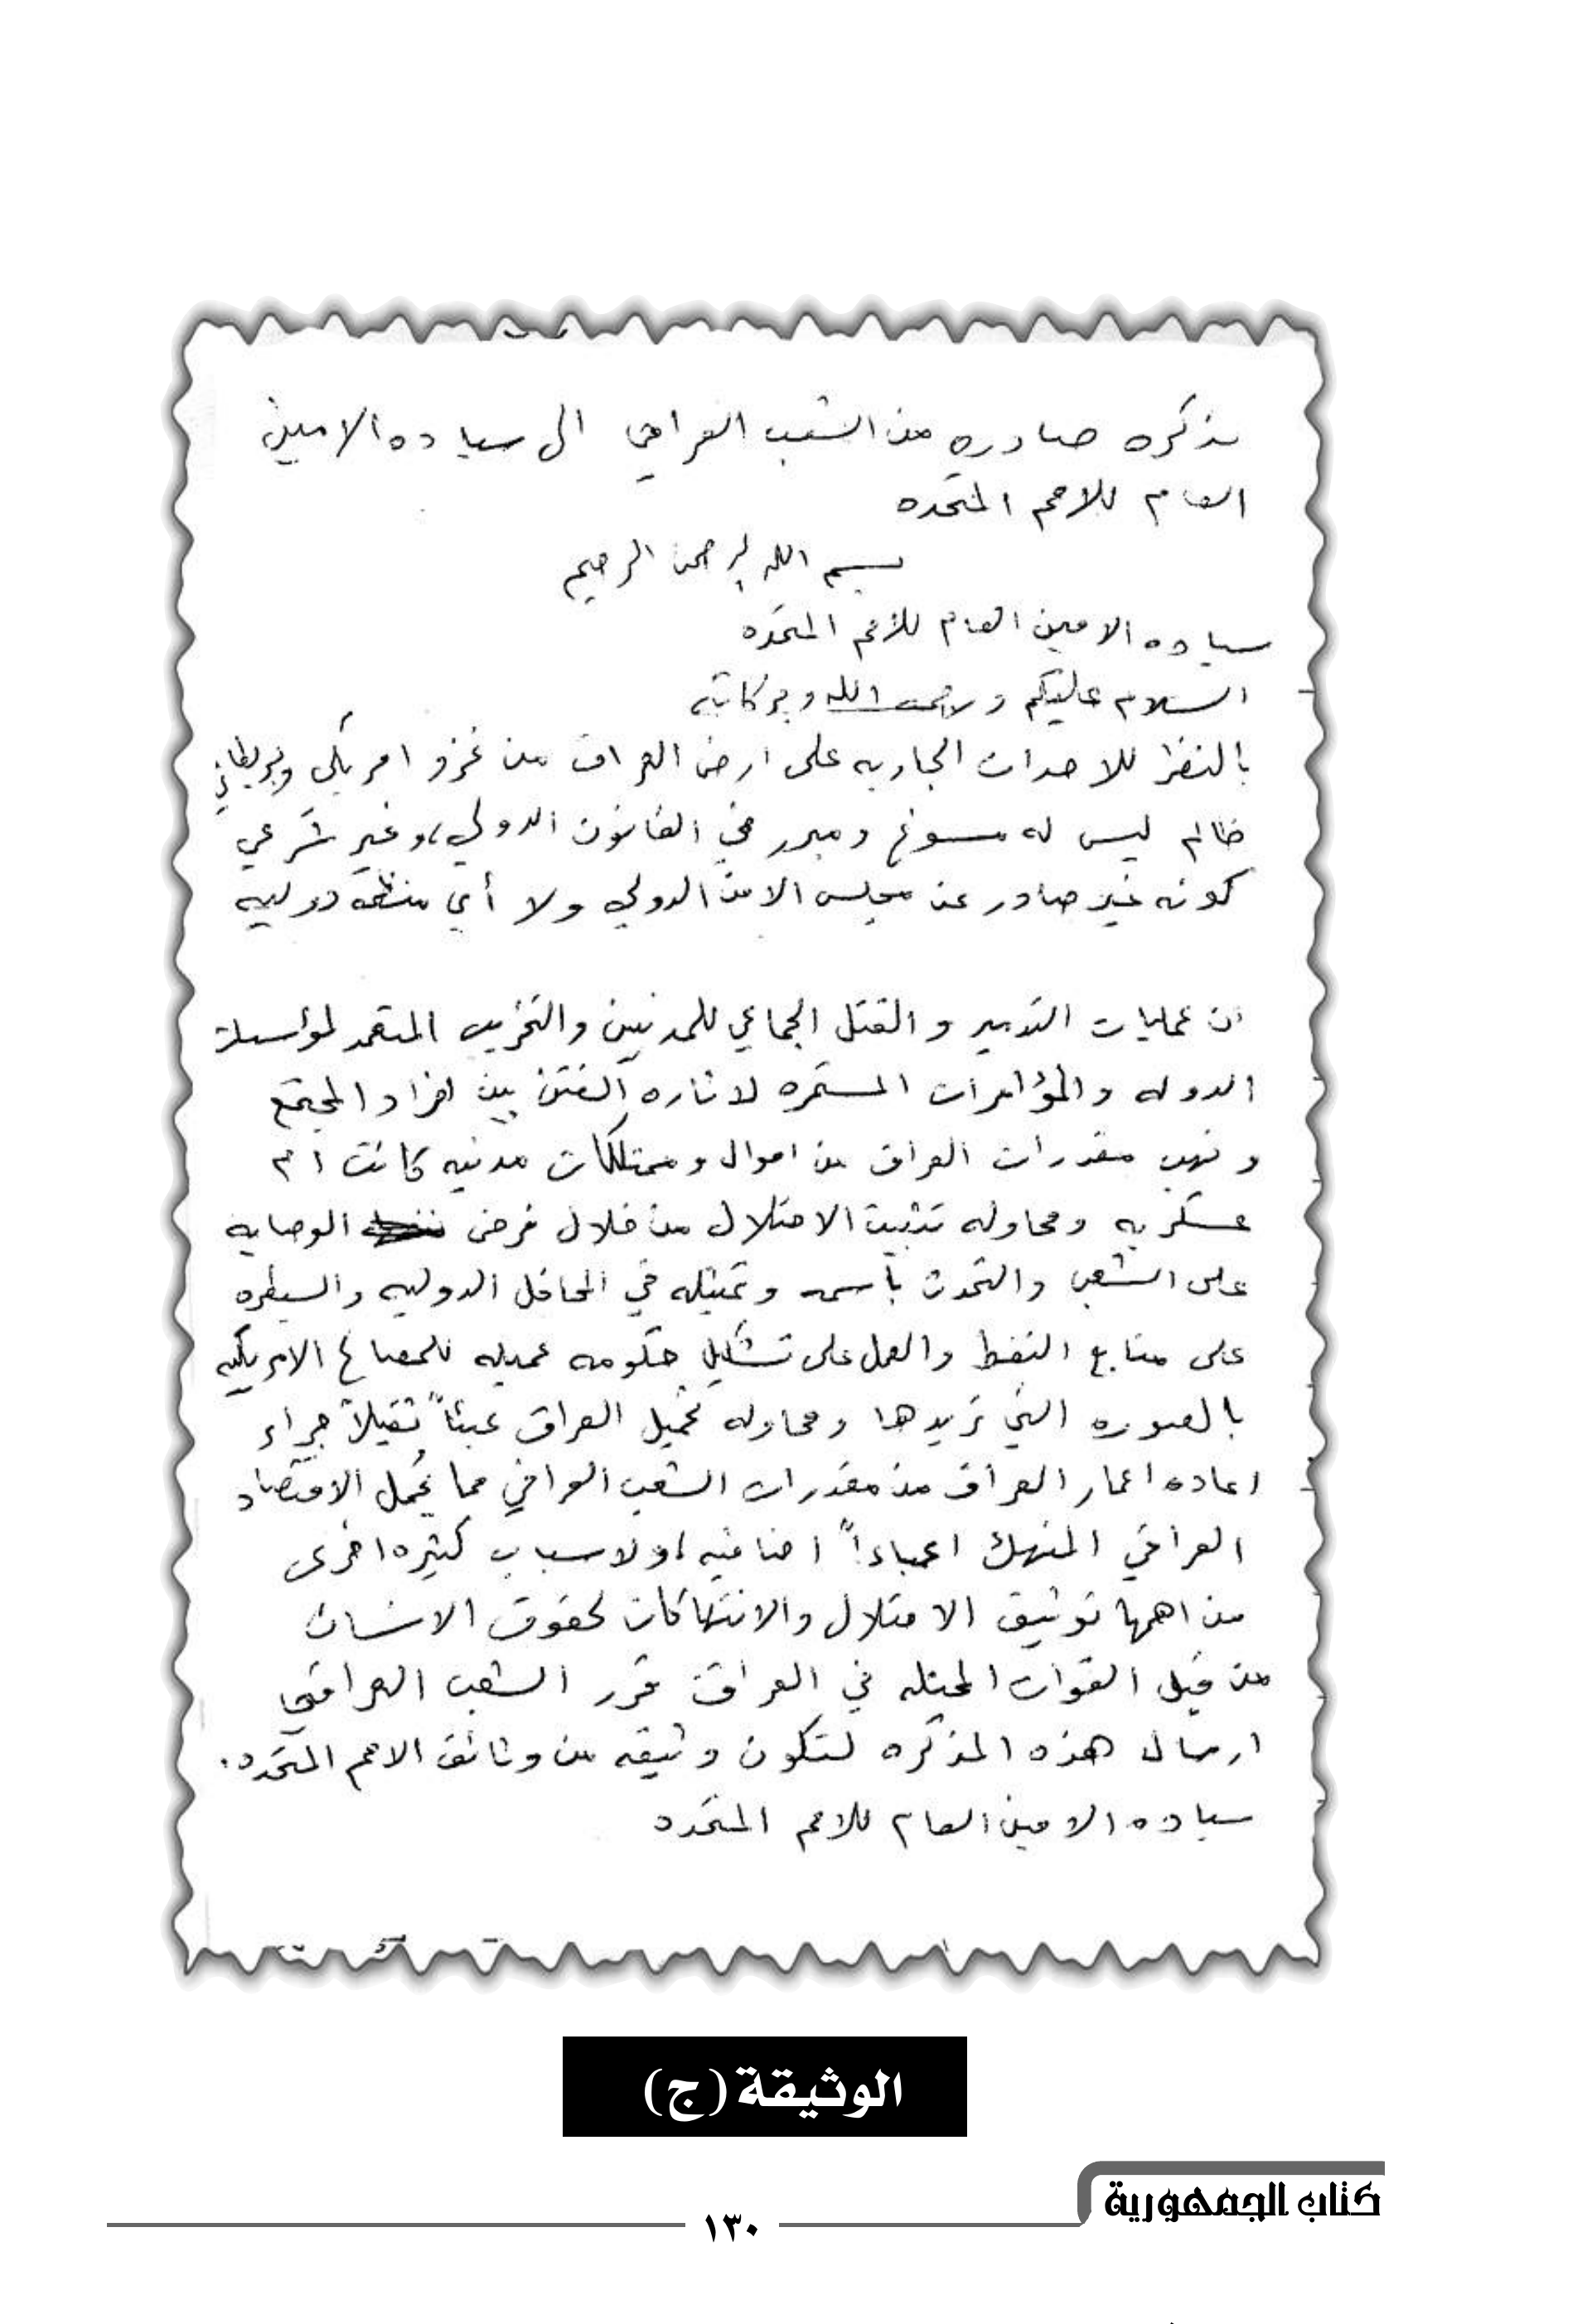 مذكره صادره من الشعب العراقي الى سياده الامين
العام للامم المتحده
بسم الله الرحمن الرحيم
سياده الامين العام للأمم المتحده
السلام عليكم ورحمة الله وبركاته
بالنظر للاحداث الجاريه على ارض العراق من غزو امريكي وبريطاني
ظالم ليس له مسوغ ومبرر في القانون الدولي، وغير شرعي
كونه غير صادر عن مجلس الامن الدولي ولا أي منظمه دوليه
ان عمليات التدمير والقتل الجماعي للمدنيين والتخريب المتعمد لمؤسسات
الدوله والمؤامرات المستمره لاثاره الفتن بين افراد المجتمع
ونهب مقدرات العراق من اموال وممتلكات مدنيه كانت ام
عسكريه ومحاوله تثبيت الاحتلال من خلال فرض الوصايه
على الشعب والتحدث بأسمه وتمثيله في المحافل الدوليه والسيطره
على منابع النفط والعمل على تشكيل حكومه عميله للمصالح الامريكيه
بالصوره التي تريدها ومحاوله تحميل العراق عبئاً ثقيلاً جراء
اعاده اعمار العراق من مقدرات الشعب العراقي مما يحمل الاقتصاد
العراقي المنهك اعباءاً اضافيه، ولاسباب كثيره اخرى
من اهمها توثيق الاحتلال والانتهاكات لحقوق الانسان
من قبل القوات المحتله في العراق قرر الشعب العراقي
ارسال هذه المذكره لتكون وثيقه من وثائق الامم المتحده.
سياده الامين العام للامم المتحده
الوثيقة (ج)
كتاب الجمهورية
١٣٠